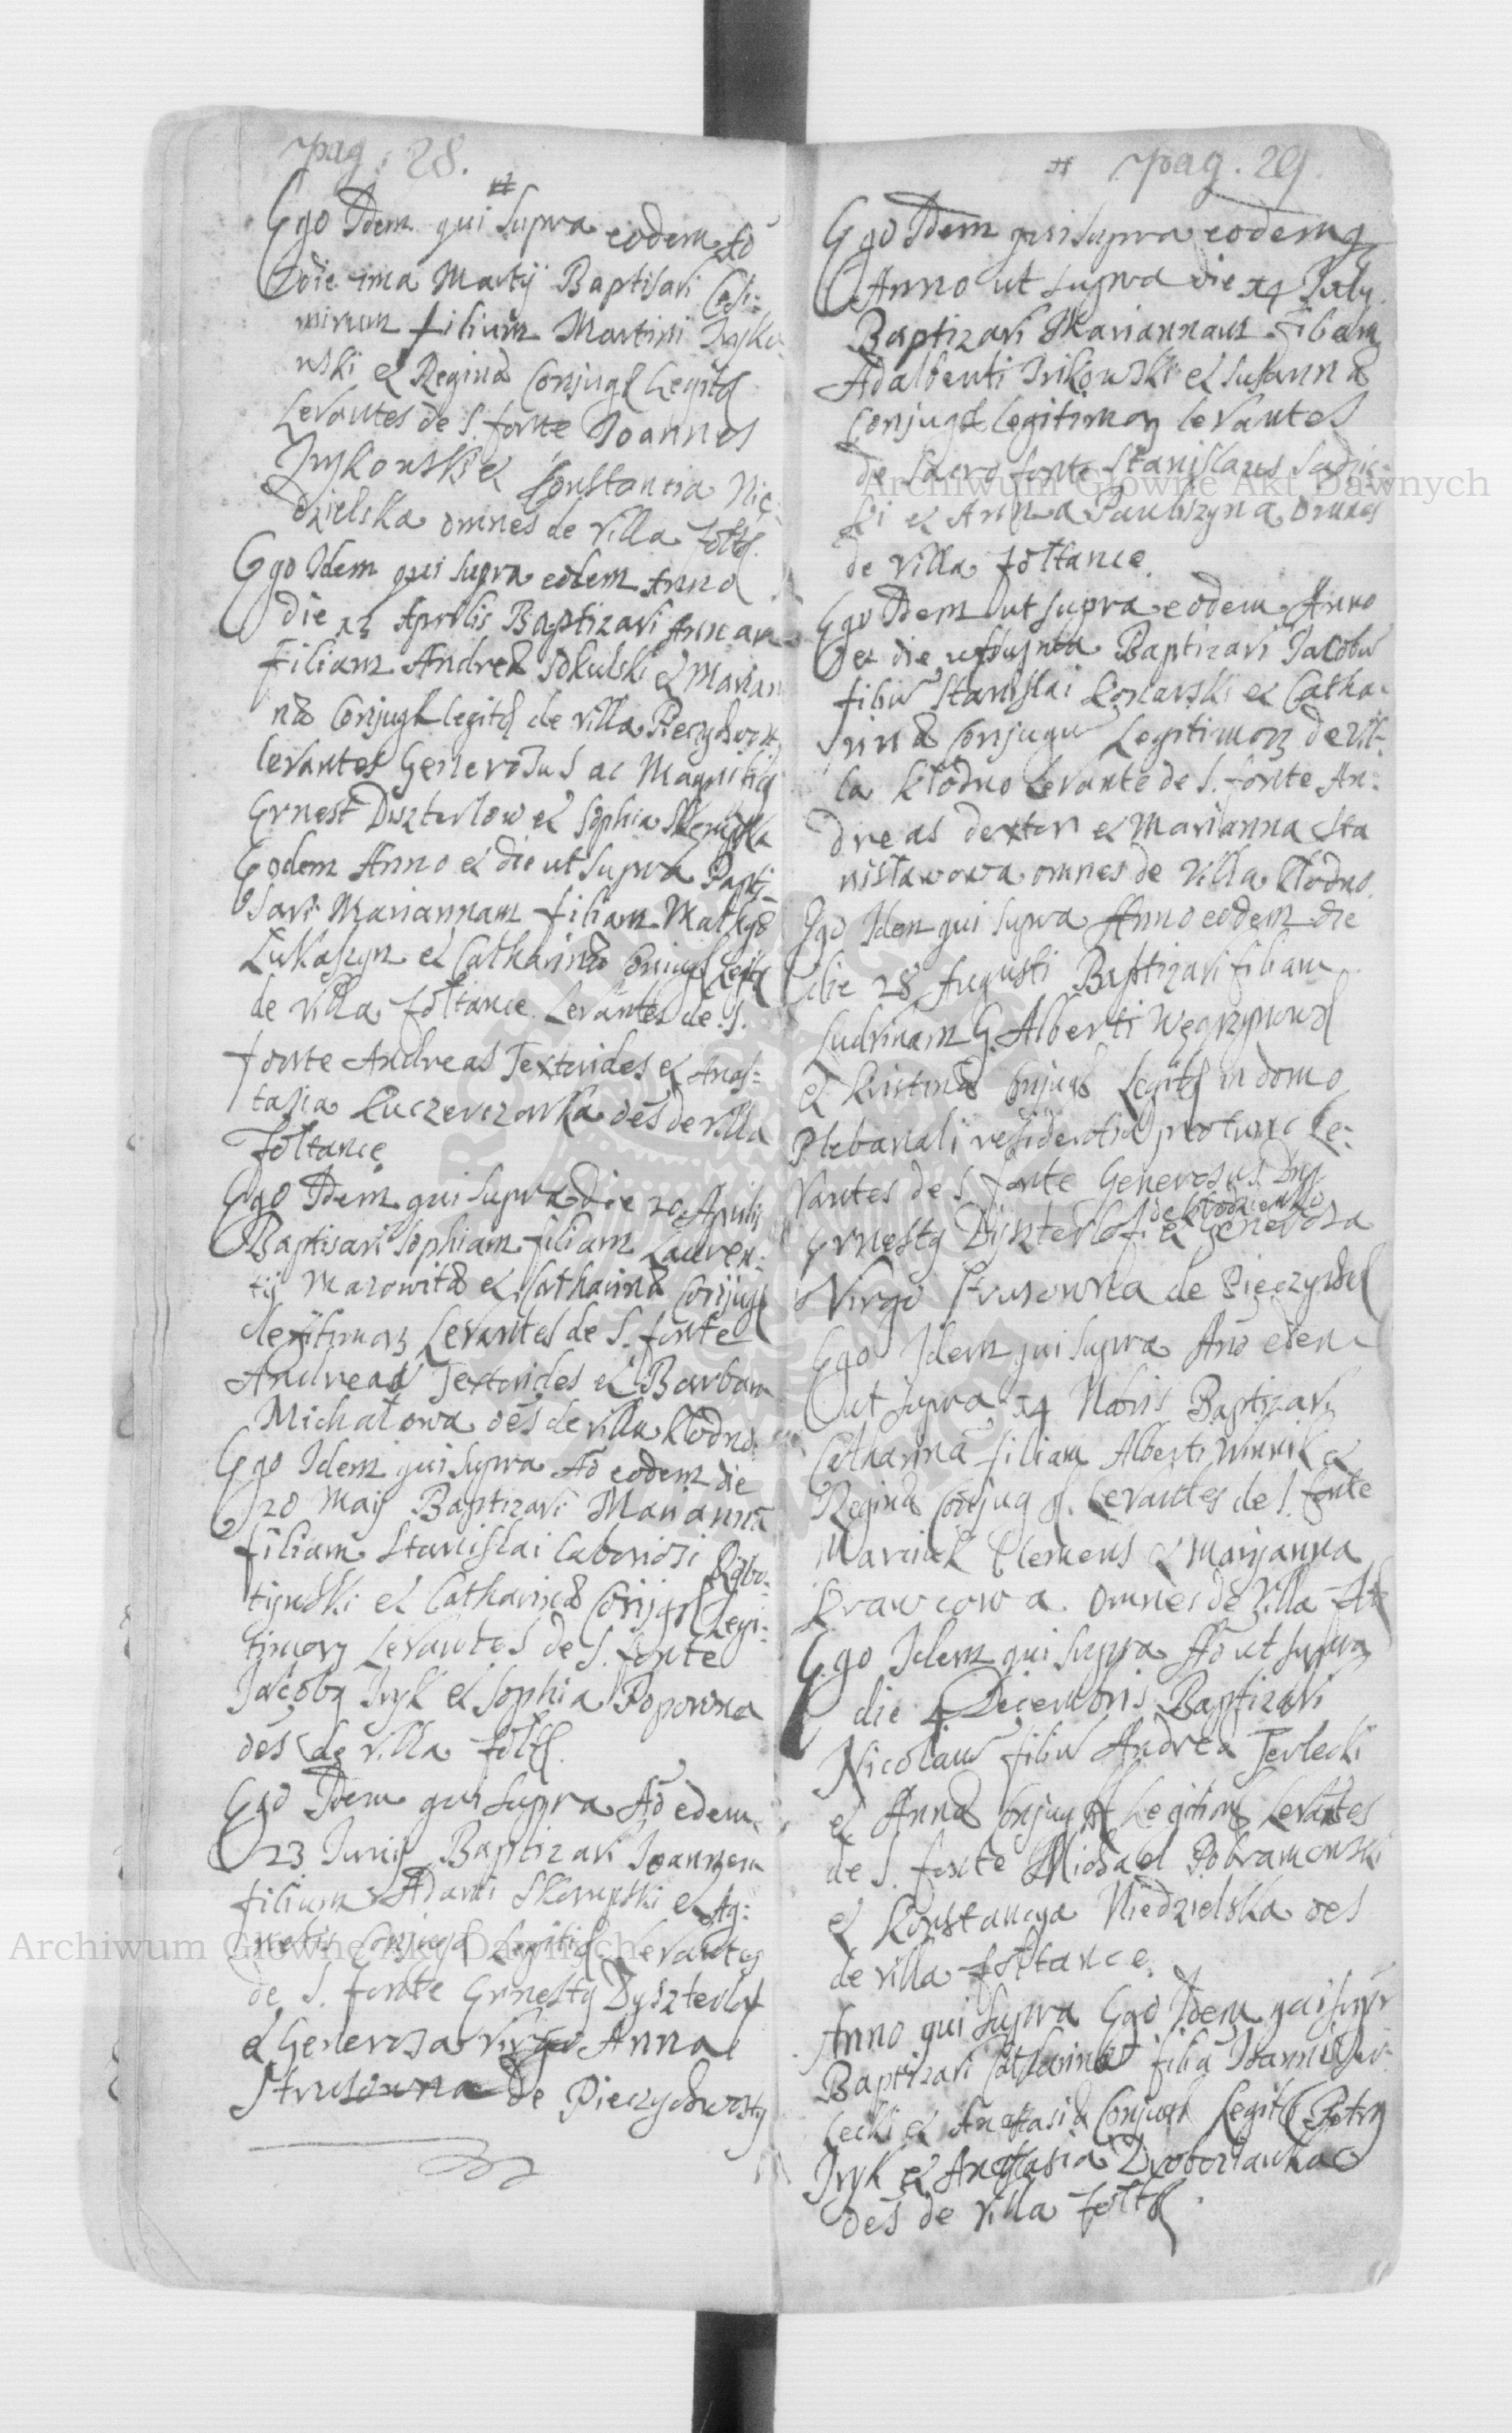 pag. 28.
Ego Idem qui supra eodem Aō
die 1ma Martij Baptisavi Casi-
mirum filium Martini Iryko-
wski et Reginæ Conjugū Legitū
Levantes de S. fonte Ioannes
Irykowski et Constancia Nie-
dzielska omnes de Villa fołt
Ego Idem qui supra eodem Anno
die 13 Aprilis Baptizavi Annam
filiam Andreæ Sokulski et Marian
næ Conjugū legitū de villa
levantes Generosus ac Magnificus
Ernest Diszterlow et Sophia
Eodem Anno et die ut supra Bapti-
savi Mariannam filiam Mathyæ
Łukaszyn et Catharinæ Coniugū Legitū
de Villa fołtance Levantes de S.
fonte Andreas Textorides et Anas-
tasia Kuczerczonka oēs de villa
Fołtance
Ego Idem qui supra die 20 Aprilis
Baptisavi Sophiam filiam Lauren-
tij Mazowitæ et Catharinæ Conjugū
Legitimorū Levantes de S. fonte
Andreas Textorides et Barbara
Michałowa oēs de villa Kłodno
Ego Idem qui supra Aō eodem die
20 Maij Baptizavi Mariannā
filiam Stanislai laboriosi Rybo-
tijnski et Catharinæ Conijgū Legi-
timorū Levantes de S. fonte
Jacobg Iryk et Sophia Popowna
oēs de villa fołt
Ego Idem qui supra Aō edem
23 Iunij Baptizavi Joannem
filium Adami Skorupski et Ag-
netis Conjugū Legitiū Levantes
de S. fonte Ernestg Dyszterlof
et Generosa Virgo Anna
Strusowna de Pieczychwosty
pag. 29.
Ego Idem qui supra eodemq
Anno ut supra die 14 July
Baptizavi Mariannam filiam
Adalberti Irikowski et Susannæ
Conjugū legitimorū levantes
de sacro fonte Stanislaus Sadzic-
ki et Anna Pauliszyna omnes
de villa fołtance
Ego Idem ut supra eodem Anno
et die Baptizavi Jacobū
filiū Stanislai Koznarski et Catha-
rinæ Conjugū Legitimorū de Vil-
la Kłodno Levante de S. fonte An-
dreas dexter et Marianna Sta
nisławowa omnes de Villa Kłodno
Ego Idem qui supra Anno eodem die
die 28 Augusti Baptizavi filiam
Ludvinam G. Alberti Węgrzynows
et Kristinæ Conjugū Legitū in domo
Plebanali residentia protunc Le-
vantes de S. fonte Generosus Dns
de Kłodzienko
Ernestg Dyszterlof et generosa
Virgo Strusowna de Pieczych
Ego Idem qui supra Anō edem
ut supra 14 Nobris Baptizavi
Catharinā filiam Alberti Winnik et
Reginæ Conjug Levantes de S. fonte
Marcinek Clemens et Maryanna
Krawcowa omnes de Villa
Ego Idem qui supra Aō ut supra
die 4 Decembris Baptizavi
Nicolaū filiū Andreæ Terlecki
et Annæ Conjug Legitim Levantes
de S. fonte Michael Dobramowski
et Konstancya Niedzielska oēs
de villa fołtance
Anno qui supra Ego Idem qui supr
Baptizavi Catharinā filiā Ioannis Ter-
lecki et Anastasiæ Conjugū Legitū Petrg
Iryk et Anastasia Dwoorzanka
oēs de villa fołt
Archiwum Główne Akt Dawnych
Archiwum Główne Akt Dawnych